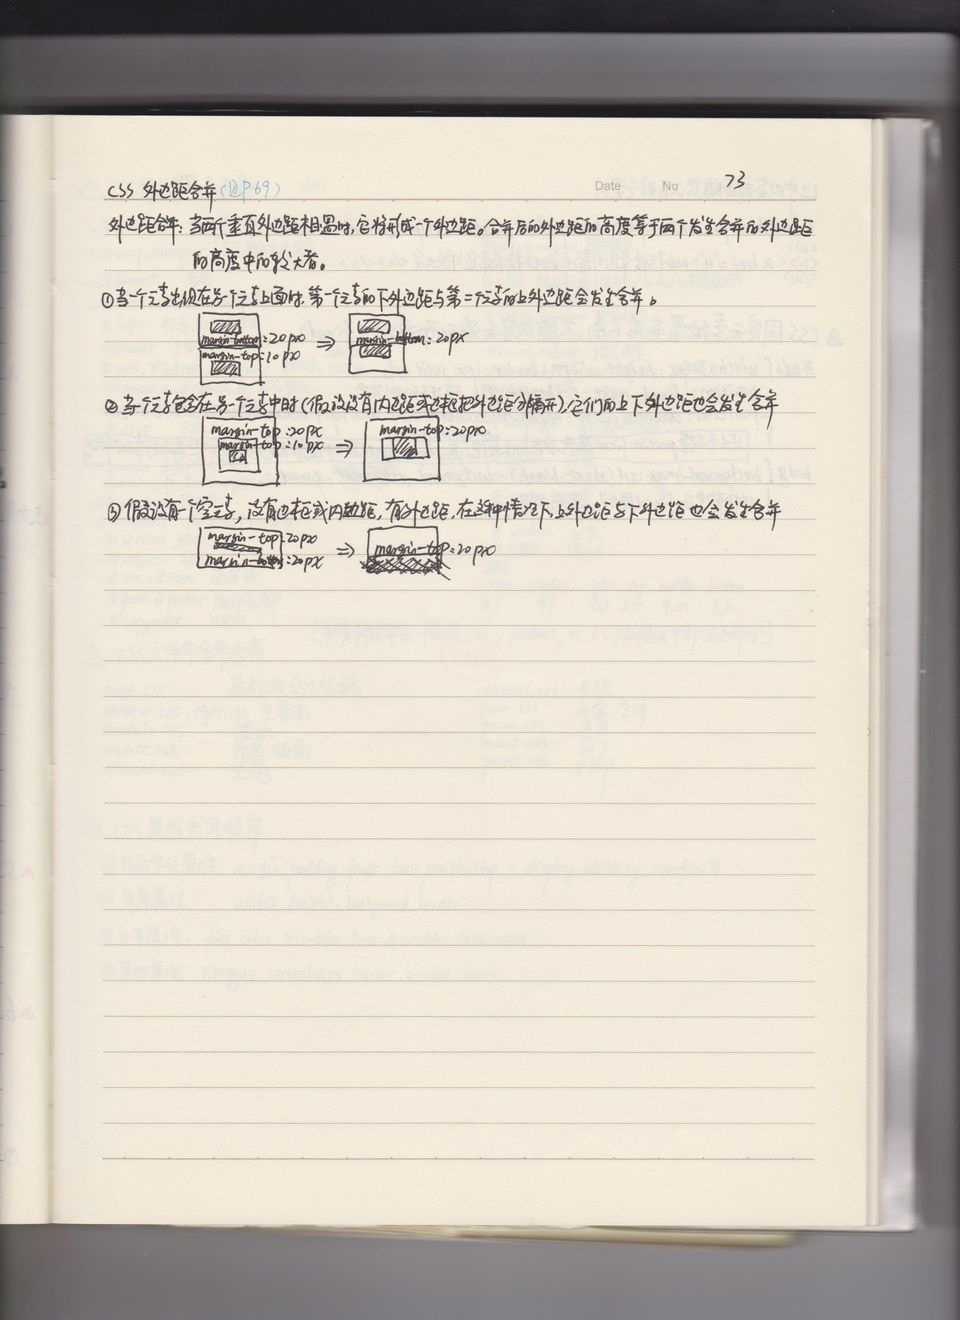 Date No 73
CSS 外边距合并 (见P69)
外边距合并: 当两个垂直外边距相遇时,它将形成一个外边距。合并后的外边距的高度等于两个发生合并的外边距
的高度中的较大者。
①当一个元素出现在另一个元素上面时,第一个元素的下外边距与第二个元素的上外边距会发生合并。
margin-bottom:20px ⇒ margin-bottom:20px
margin-top:10px
②当一个元素包含在另一个元素中时(假设没有内边距或边框把外边距分隔开),它们的上下外边距也会发生合并
margin-top:20px ⇒ margin-top:20px
margin-top:10px
③假设有一个空元素,没有边框或内边距,有外边距,在这种情况下上外边距与下外边距也会发生合并
margin-top:20px ⇒ margin-top:20px
margin-bottom:20px